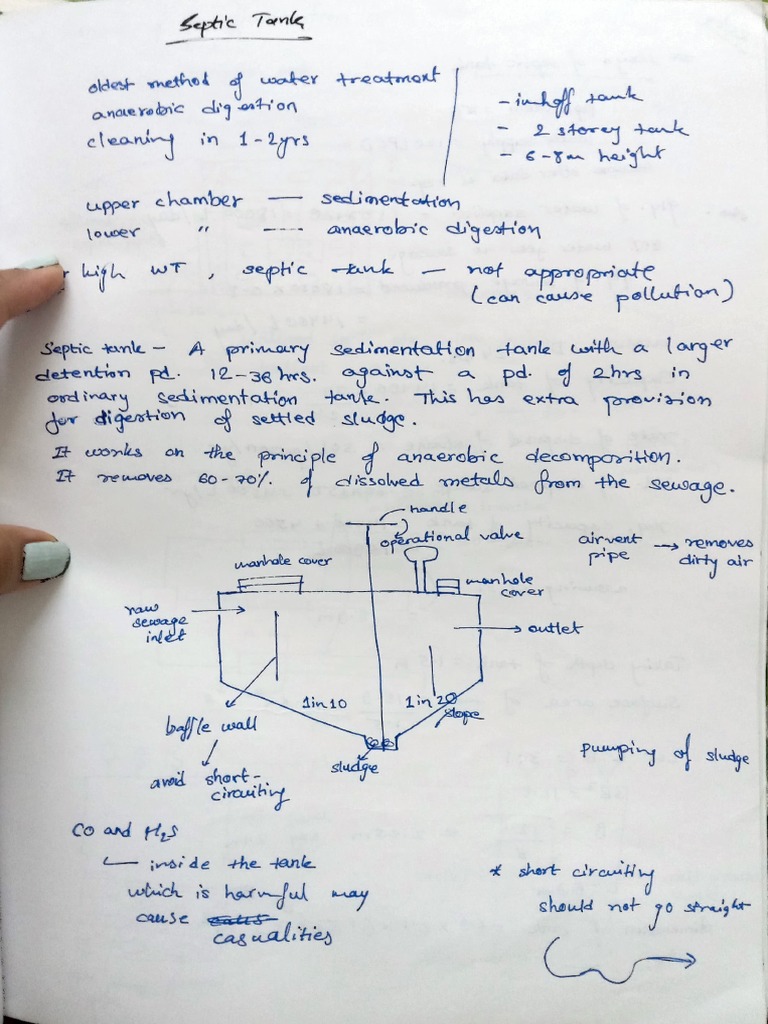 Septic Tank
oldest method of water treatment
anaerobic digestion
cleaning in 1-2yrs
- imhoff tank
- 2 storey tank
- 6-8m height
upper chamber — sedimentation
lower " ---- anaerobic digestion
high WT, septic tank — not appropriate
(can cause pollution)
Septic tank - A primary sedimentation tank with a larger
detention pd. 12-36 hrs. against a pd. of 2hrs in
ordinary sedimentation tank. This has extra provision
for digestion of settled sludge.
It works on the principle of anaerobic decomposition.
It removes 60-70% of dissolved metals from the sewage.
handle
operational valve
airvent → removes
pipe dirty air
manhole cover
manhole
cover
raw
sewage
inlet
outlet
1 in 10
1 in 20
slope
baffle wall
sludge
avoid short-
circuiting
pumping of sludge
CO and H2S
inside the tank
which is harmful may
cause
casualities
* short circuiting
should not go straight